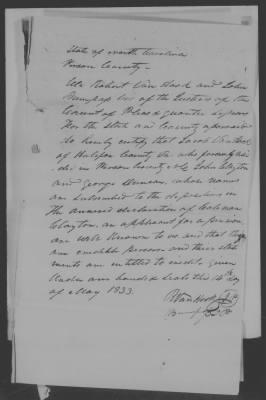 State of North Carolina
Person County
We Robert Van Hook and John
two of the Justices of the
Court of Pleas & quarter Sessions
For the State and County aforesaid
do hereby certify that Jacob
of Halifax County Va who formerly
in Person County N.C. John Clayton
and George Duncan, whose names
are subscribed to the depositions in
the annexed declaration of Coleman
Clayton, an applicant for a pension,
are well known to us and that they
are credible persons and their state
ments are entitled to credit, given
under our hands & Seals this 14th
of May 1833.
R Vanhook J.P.